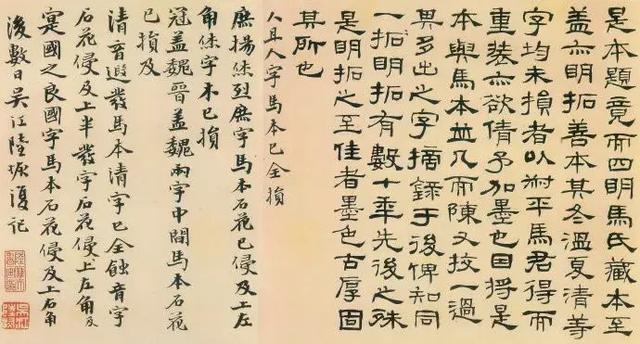 是本題竟而四明馬氏藏本至
盖亦明拓善本其冬溫夏清等
字均未損者以平馬君得而
重裝亦欲倩予加墨也因將是
本與馬本並几而陳又挍一過
異多出之字摘錄于後俾知同
一拓明拓有數十年先後之殊
是明拓之至佳者墨色古厚固
其所也
人且人字馬本已全損
庶揚烋烈庶字馬本石花已侵及上左
角烋字末已損
冠盖魏晉盖魏兩字中間馬本石花
已損及
清音遐發馬本清字已全蝕音字
石花侵及上半發字石花侵上左角及
寔國之良國字馬本石花侵及上右角
後數日吳江陸恢復記